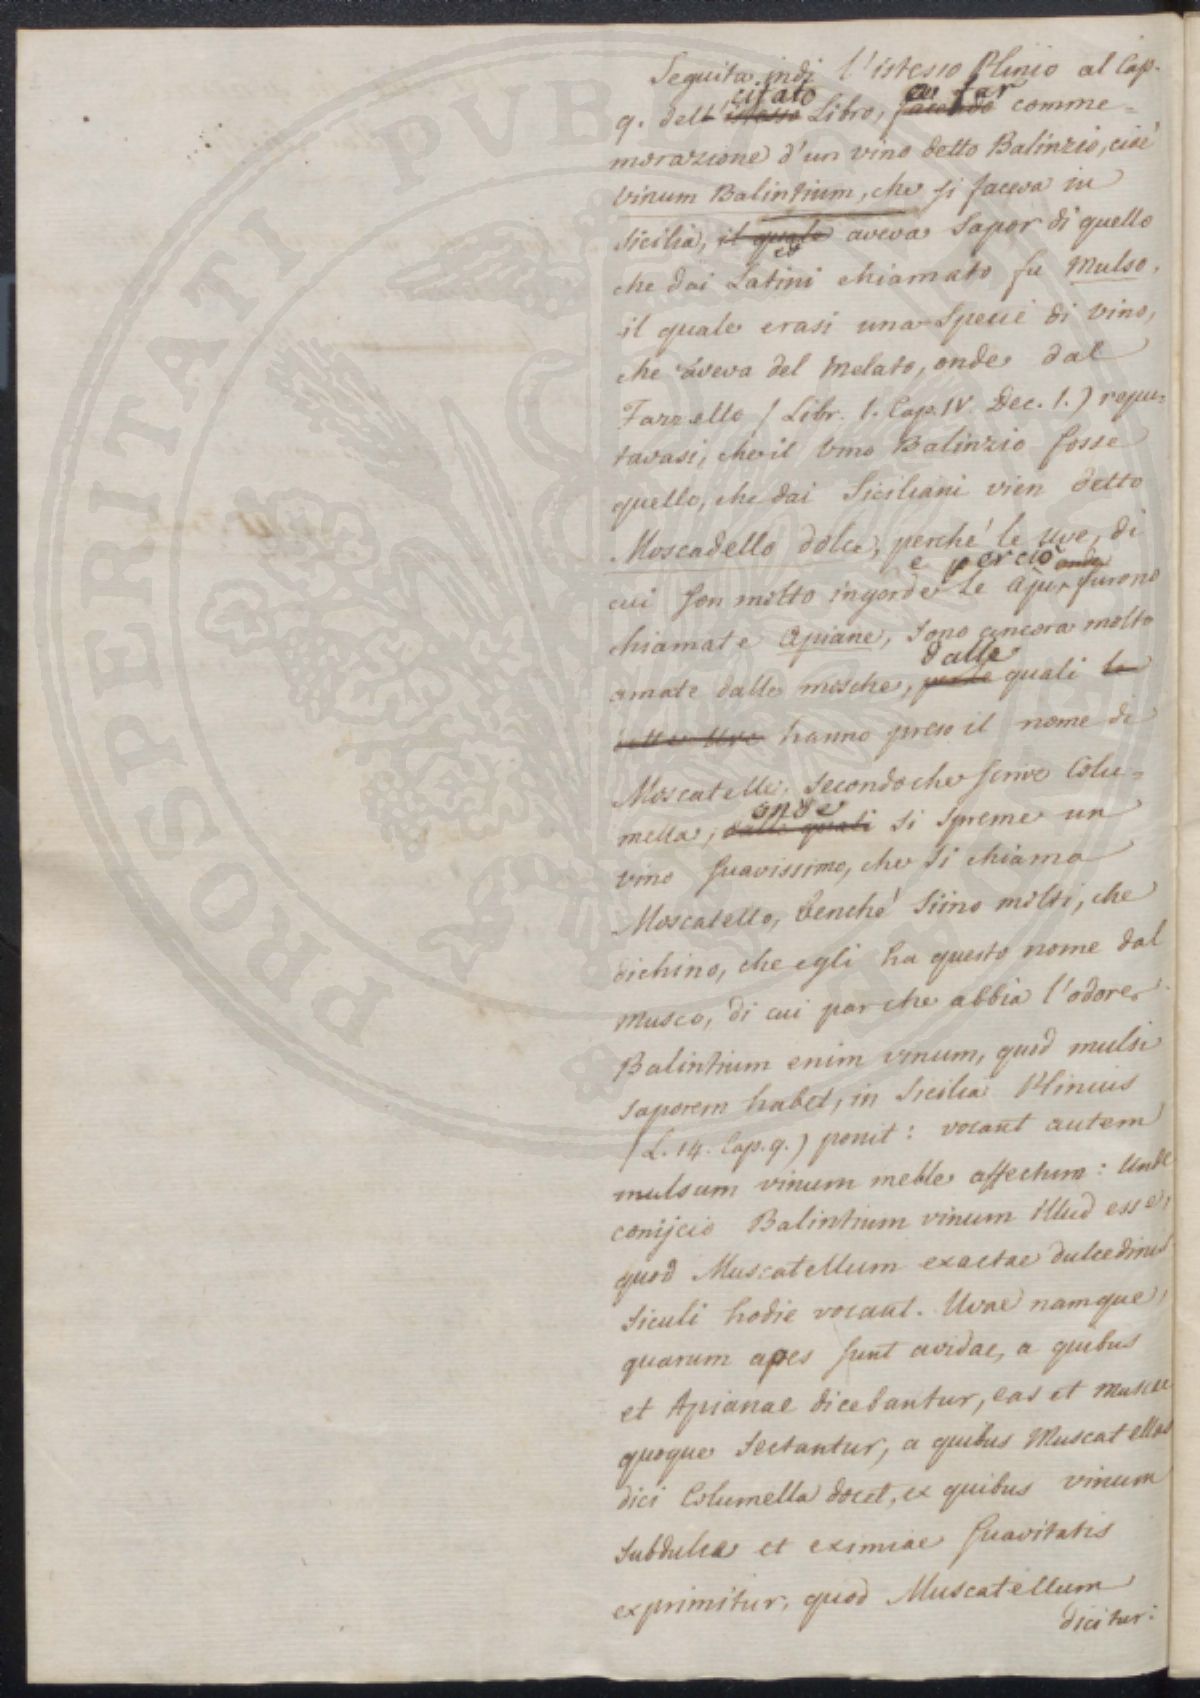 Seguita indi l'istesso Plinio al Cap.
9. dell' citato istesso Libro, a far facendo comme-
morazione d'un vino detto Balinzio, cioè
vinum Balintium, che si faceva in
Sicilia, il quale ed aveva sapor di quello
che dai Latini chiamato fu Mulso,
il quale erasi una specie di vino,
che aveva del melato, onde dal
Fazzello (Libr. 1. Cap. IV. Dec. 1.) repu-
tavasi, che il vino Balinzio fosse
quello, che dai Siciliani vien detto
Moscadello dolce, perchè le uve, di
e perciò onde
cui son molto ingorde le api, furono
chiamate Apiane, sono ancora molto
dalle
amate dalle mosche, quali le
dette Uve hanno preso il nome di
Moscatelle, secondo che scrive Colu-
onde
mella, dalle quali si spreme un
vino suavissimo, che si chiama
Moscatello, benchè siino molti, che
dichino, che egli ha questo nome dal
musco, di cui par che abbia l'odore.
Balintium enim vinum, quod mulsi
saporem habet, in Sicilia Plinius
(L. 14. Cap. 9.) ponit: vocant autem
mulsum vinum melle affectum: Unde
conijcio Balintium vinum illud esse,
quod Muscatellum exactae dulcedinis
Siculi hodie vocant. Uvae namque,
quarum apes sunt avidae, a quibus
et Apianae dicebantur, eas et muscae
quoque sectantur, a quibus Muscatellas
dici Columella docet, ex quibus vinum
subdulce et eximiae suavitatis
exprimitur, quod Muscatellum
dicitur:
PROSPERITATI PUBLICAE